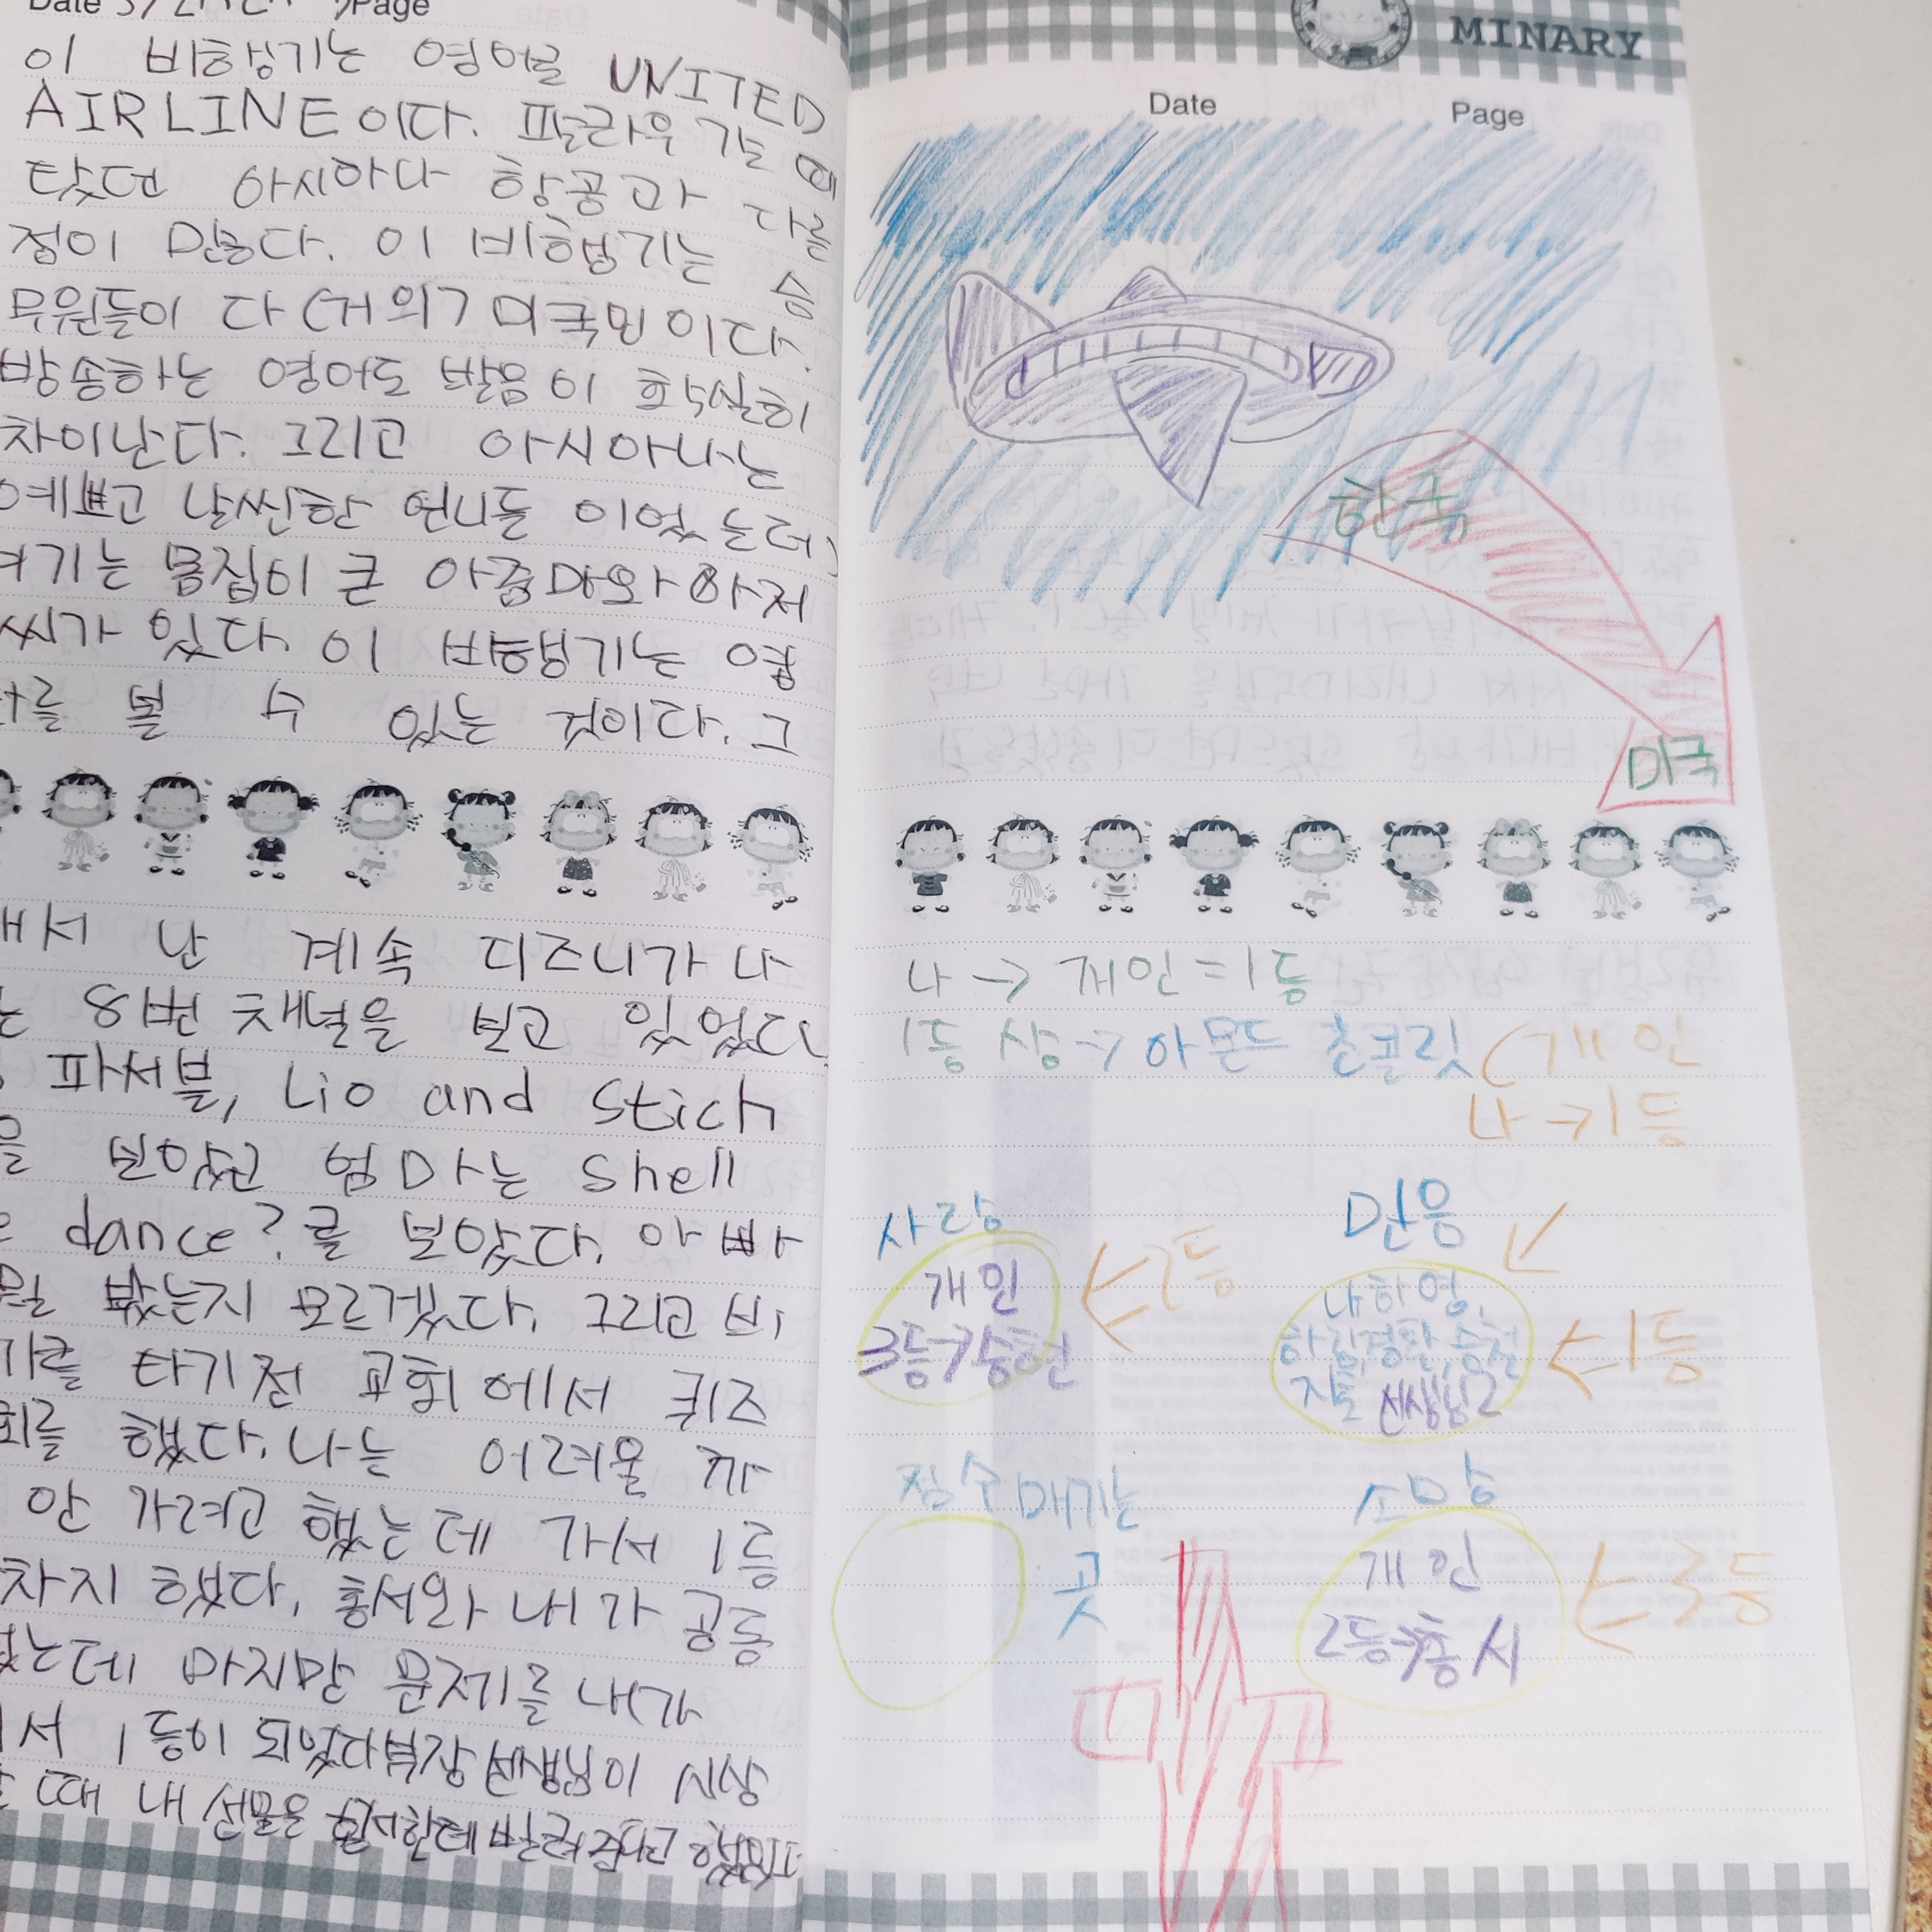 Date Page
이 비행기는 영어로 UNITED
AIRLINE이다. 팔라우 갈 때
탔던 아시아나 항공과 다른
점이 많다. 이 비행기는 승
무원들이 다 (거의) 미국인이다.
방송하는 영어도 발음이 확실히
차이난다. 그리고 아시아나는
예쁘고 날씬한 언니들 이었는데,
여기는 몸집이 큰 아줌마와 아저
씨가 있다. 이 비행기는 영
를 볼 수 있는 것이다. 그
서 난 계속 디즈니가 나
는 8번 채널을 보고 있었다.
파서블, Lio and Stich
을 보았고 엄마는 Shell
dance?를 보았다. 아빠
뭘 봤는지 모르겠다. 그리고 비
기를 타기 전 교회에서 퀴즈
회를 했다. 나는 어려울 까
안 가려고 했는데 가서 1등
차지 했다. 총서와 내가 공동
는데 마지막 문제를 내가
서 1등이 되었다 부장 선생님이 시상
때 내 선물을
MINARY
Date Page
한국
미국
나 → 재인 = 1등
1등 상 → 아몬드 초콜릿 (개인
나 → 1등
사랑
개인
3등→승현
← 2등
믿음
나하영,
선생님2
← 1등
점수 매기는
곳
소망
개인
2등→총서
← 3등